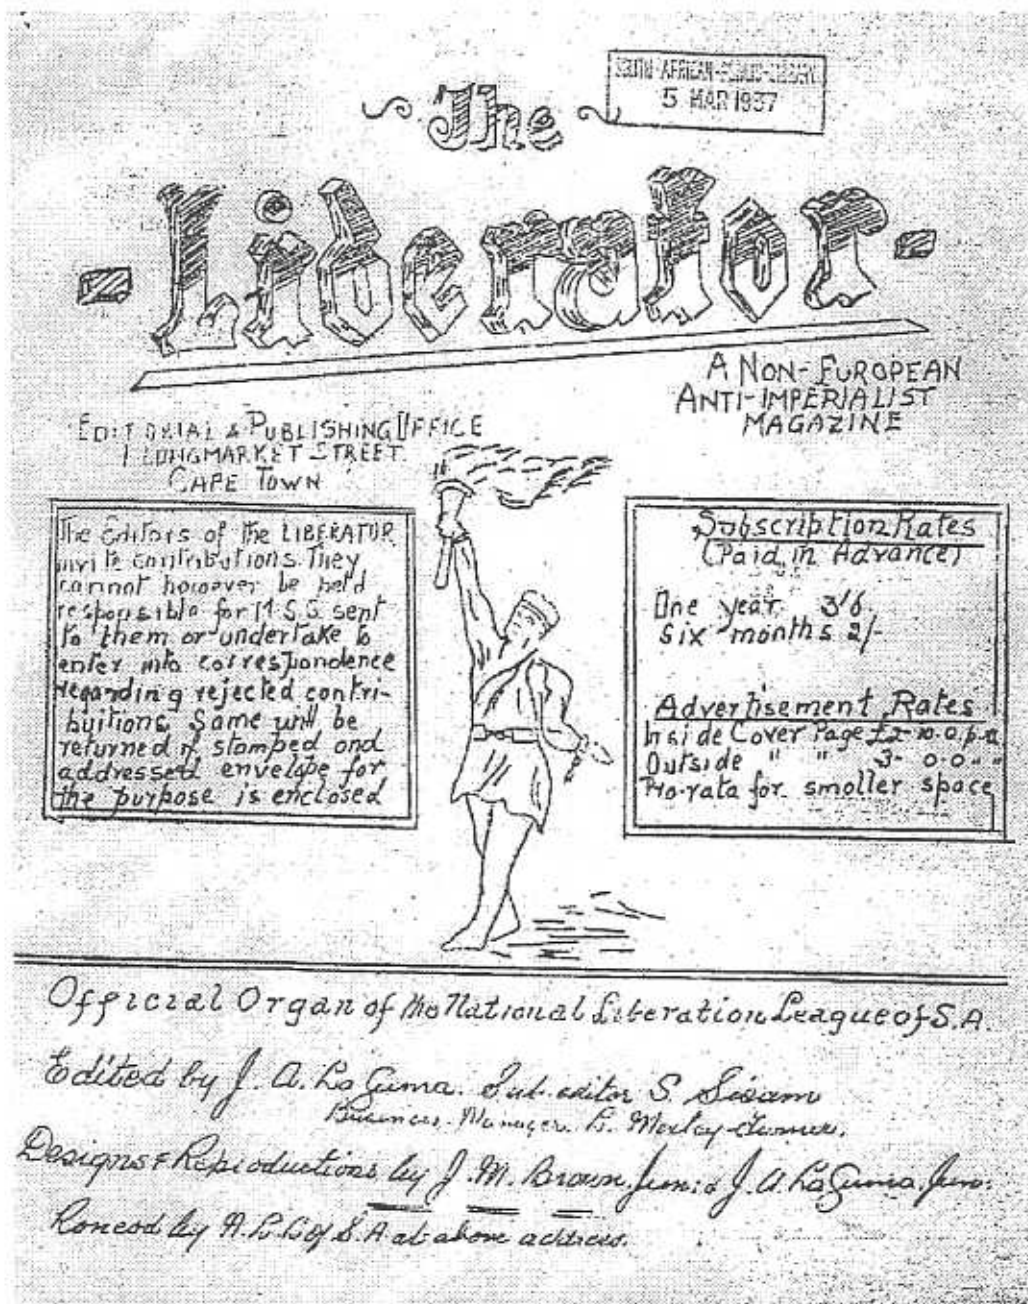 The
SOUTH-AFRICAN-PUBLIC-LIBRARY
5 MAR 1937
-Liberator-
A NON-EUROPEAN
ANTI-IMPERIALIST
MAGAZINE
EDITORIAL & PUBLISHING OFFICE
1 LONGMARKET STREET
CAPE TOWN
The Editors of the LIBERATOR
invite contributions. They
cannot however be held
responsible for M.S.S. sent
to them or undertake to
enter into correspondence
regarding rejected contri-
buitions. Same will be
returned if stamped and
addressed envelope for
the purpose is enclosed
Subscription Rates
(Paid in Advance)
One year 3/6
Six months 2/-
Advertisement Rates
Inside Cover Page £2-10.0.p.a
Outside " " 3- 0-0 " "
Pro-rata for smaller space
Official Organ of the National Liberation League of S.A.
Edited by J. A. La Guma. Sub-editor S.
Business Manager. Morley-Turner.
Designs & Reproductions by J. M. Brown Jun: & J. A. La Guma, Jun:
Roneod by N.L.L. of S.A at above address.